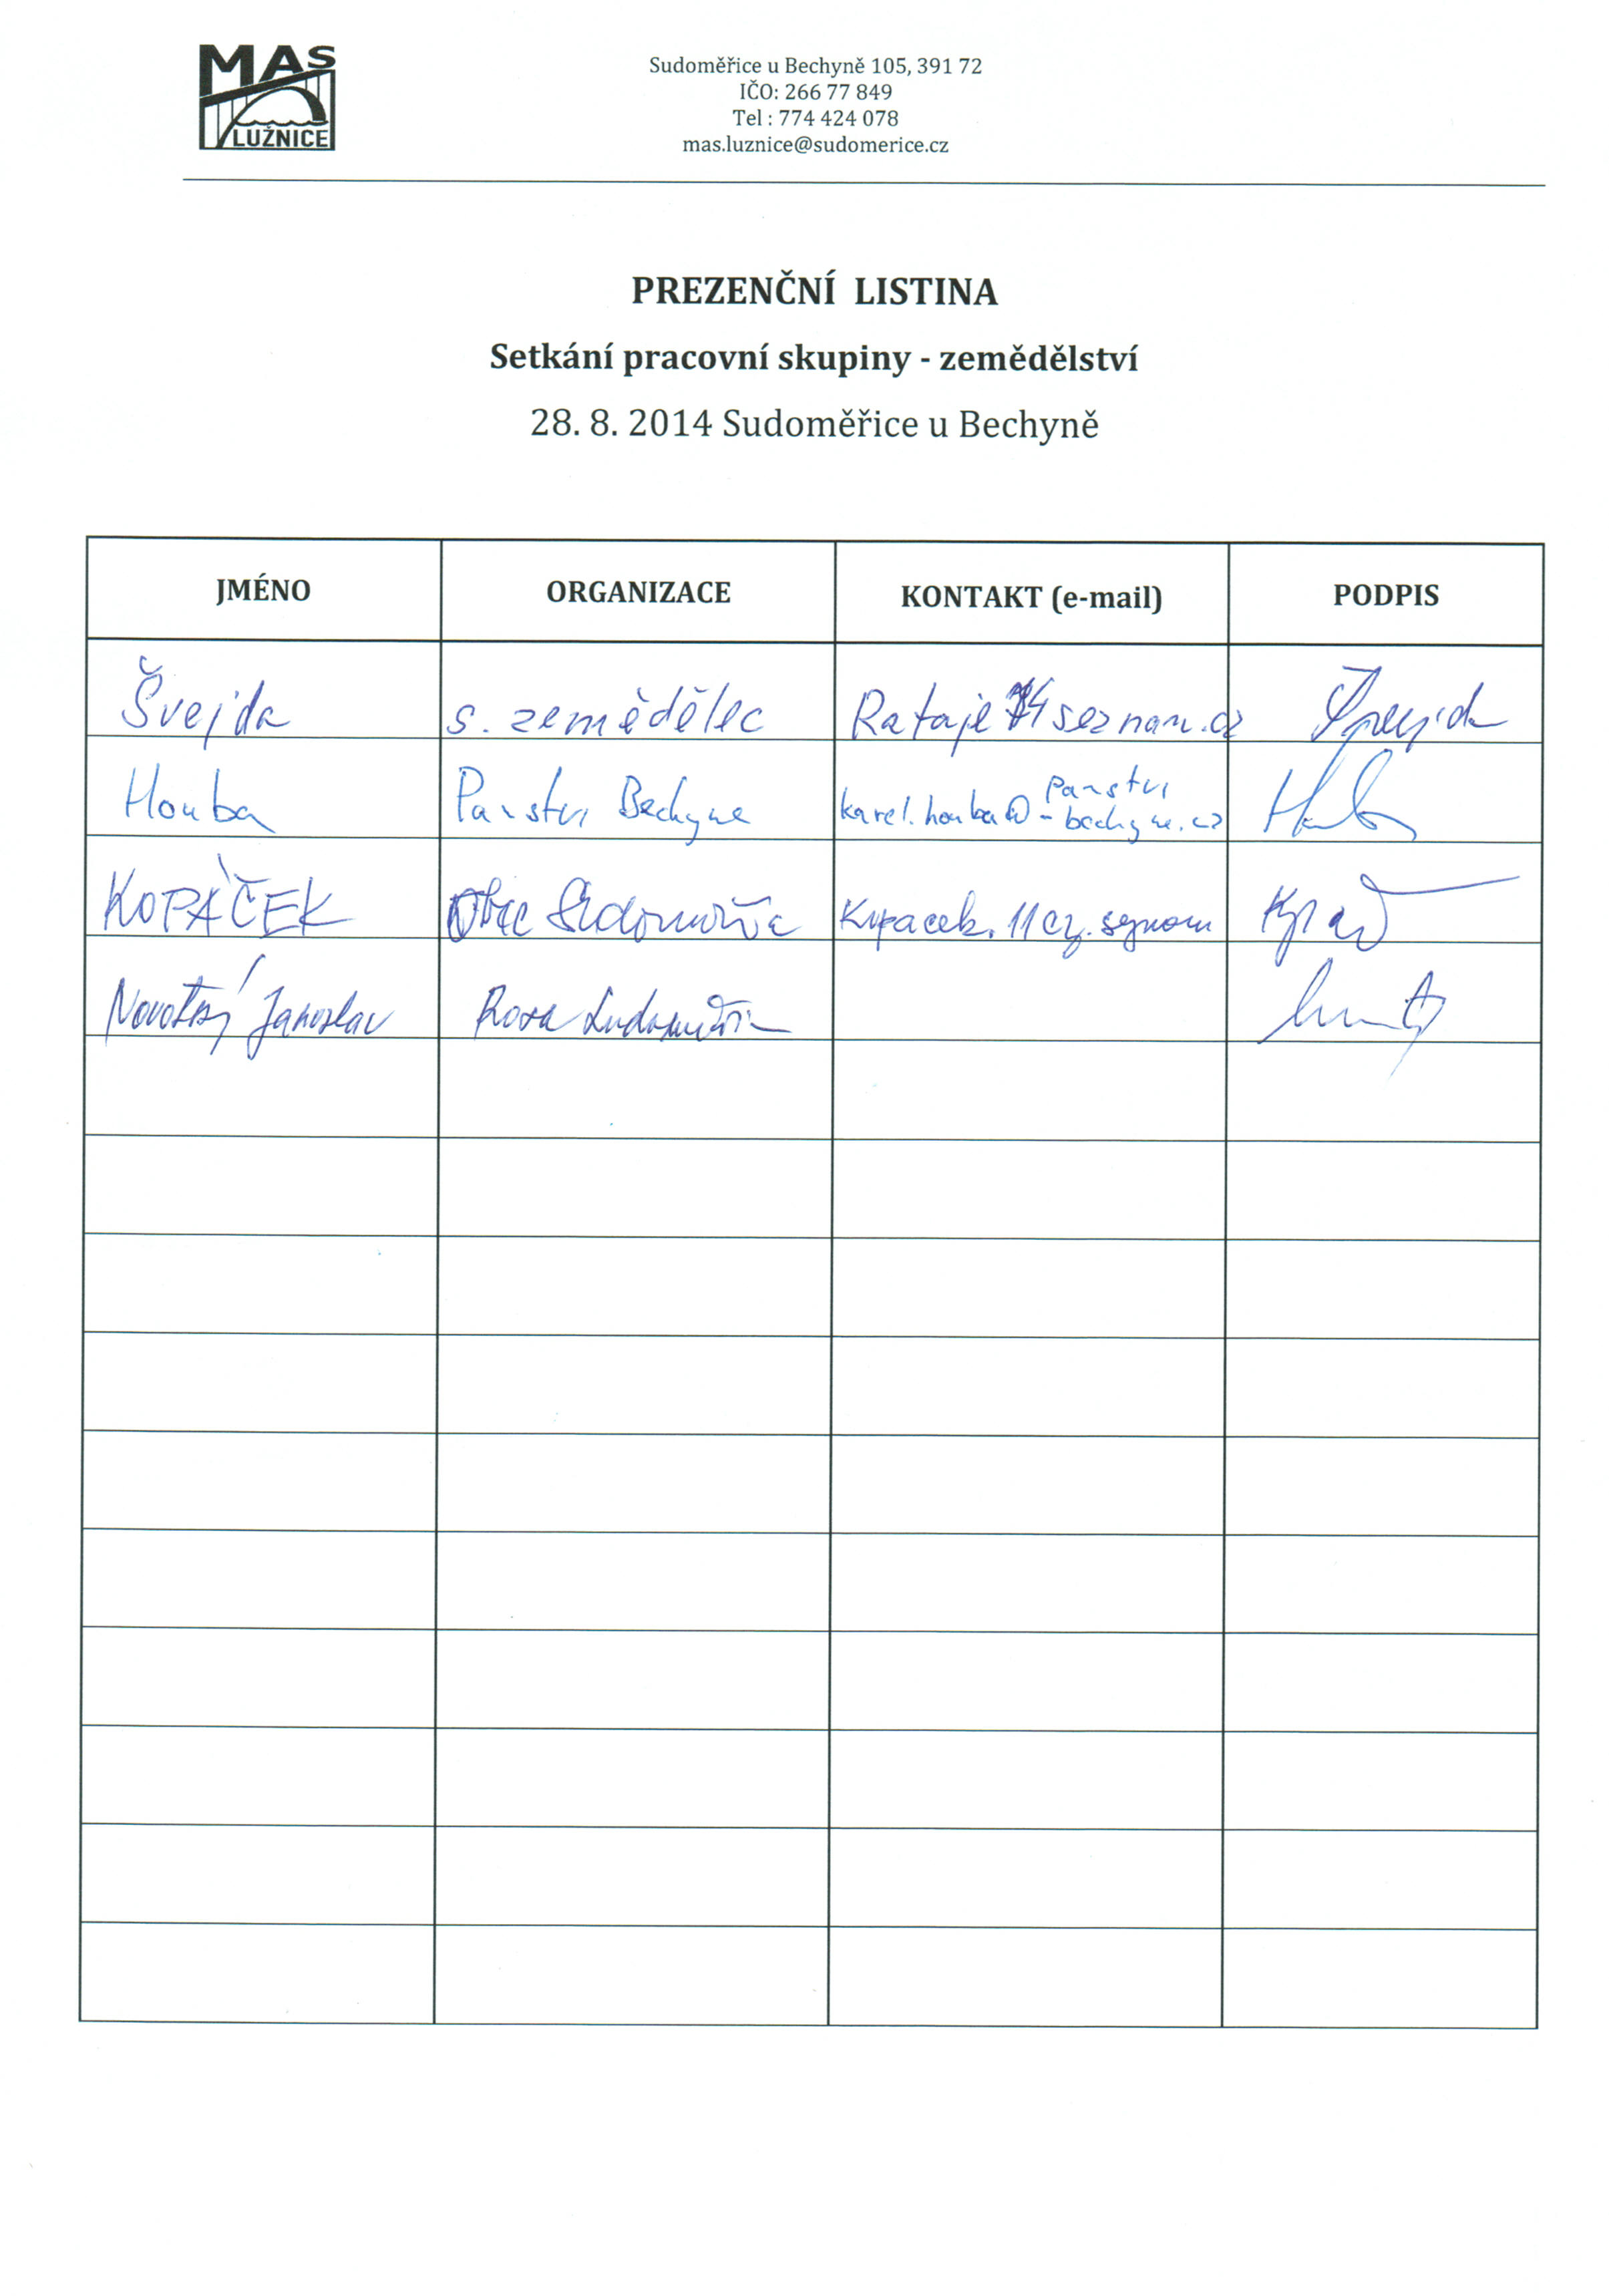 MAS
LUŽNICE
Sudoměřice u Bechyně 105, 391 72
IČO: 266 77 849
Tel : 774 424 078
mas.luznice@sudomerice.cz
PREZENČNÍ LISTINA
Setkání pracovní skupiny - zemědělství
28. 8. 2014 Sudoměřice u Bechyně
JMÉNO ORGANIZACE KONTAKT (e-mail) PODPIS
Švejda s. zemědělec Rataje seznam.cz Švejda
Houba Panstvi Bechyne karel.houba@panstvi-bechyne.cz
KOPÁČEK Obec Kopacek.11 cz.seznam
Novotný Jaroslav Rosa